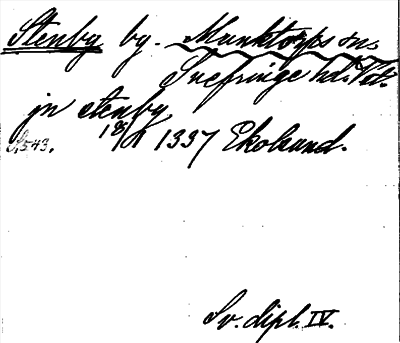 Stenby by. Munktorps sn.
Snefringe hd. Vstm.
jn stenby
S. 543. 18/1 1337 Ekolsund.
Sv. dipl. IV.